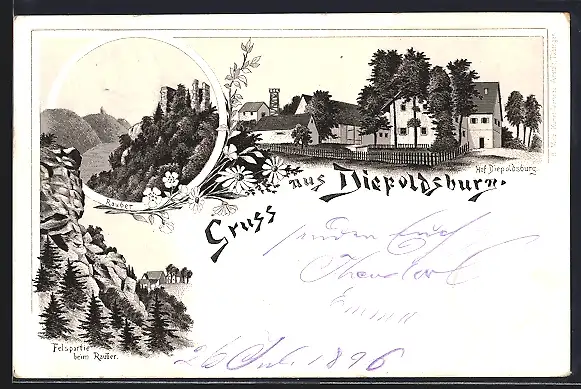 Rauber
Hof Diepoldsburg.
Gruss aus Diepoldsburg.
Felspartie
beim Rauber.
senden Euch
Emma
26 Juli 1896